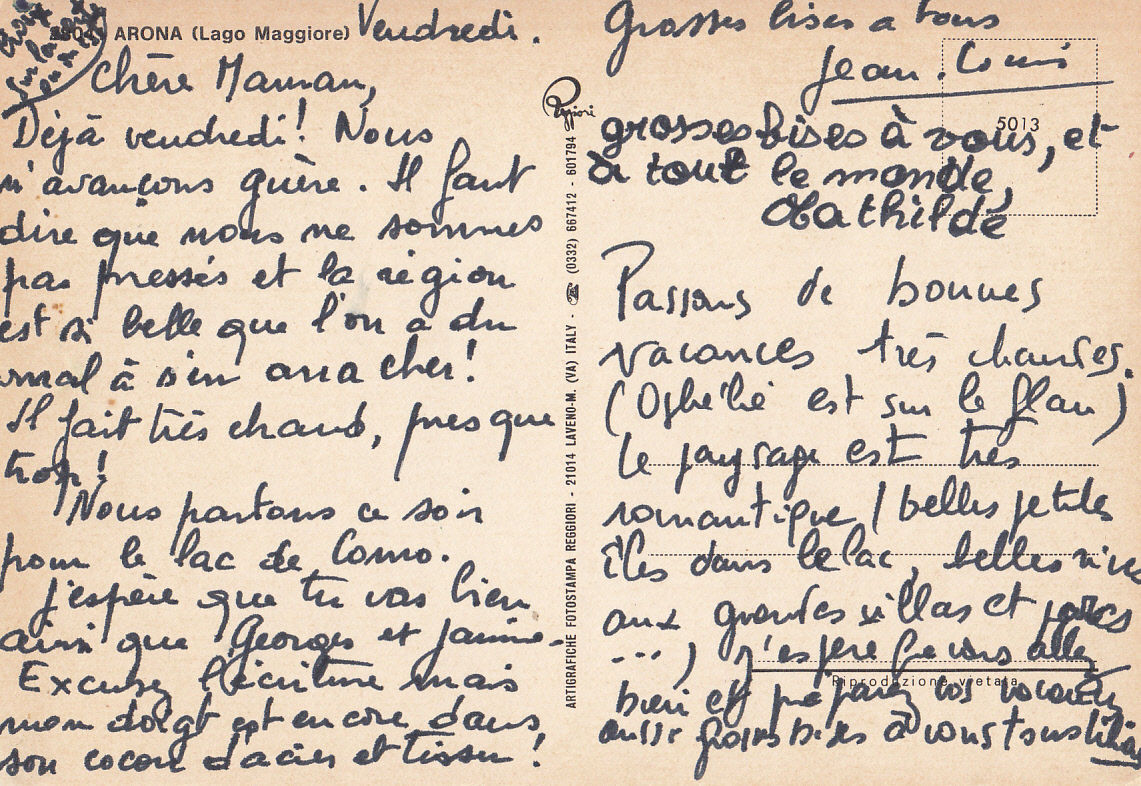 28041 ARONA (Lago Maggiore) Vendredi.
Chère Maman,
Déjà vendredi! Nous
n'avançons guère. Il faut
dire que nous ne sommes
pas pressés et la région
est si belle que l'on a du
mal à s'en arracher!
Il fait très chaud, presque
trop!
Nous partons ce soir
pour le lac de Como.
J'espère que tu vas bien
ainsi que Georges et Janine.
Excusez l'écriture mais
mon doigt est encore dans
son cocon d'acier et tissu!
Reggiori
ARTIGRAFICHE FOTOSTAMPA REGGIORI - 21014 LAVENO-M. (VA) ITALY - ☎ (0332) 667412 - 601794
Grosses bises a tous
Jean.Louis
5013
grosses bises à vous, et
à tout le monde,
Mathilde
Passons de bonnes
vacances très chaudes.
(Ophélie est sur le flan)
le paysage est très
romantique (belles petites
îles dans le lac, belles rives
aux grandes villas et parcs
...) J'espère que vous allez
Riproduzione vietata
bien et préparez vos vacances
aussi grosses bises à vous tous